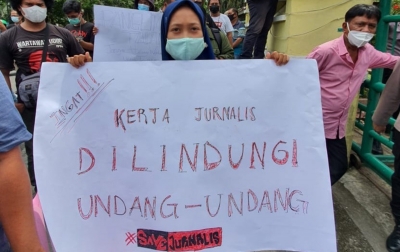 INGAT!!!
KERJA JURNALIS
DILINDUNGI
UNDANG-UNDANG
#SAVEJURNALIS
WARTAWAN